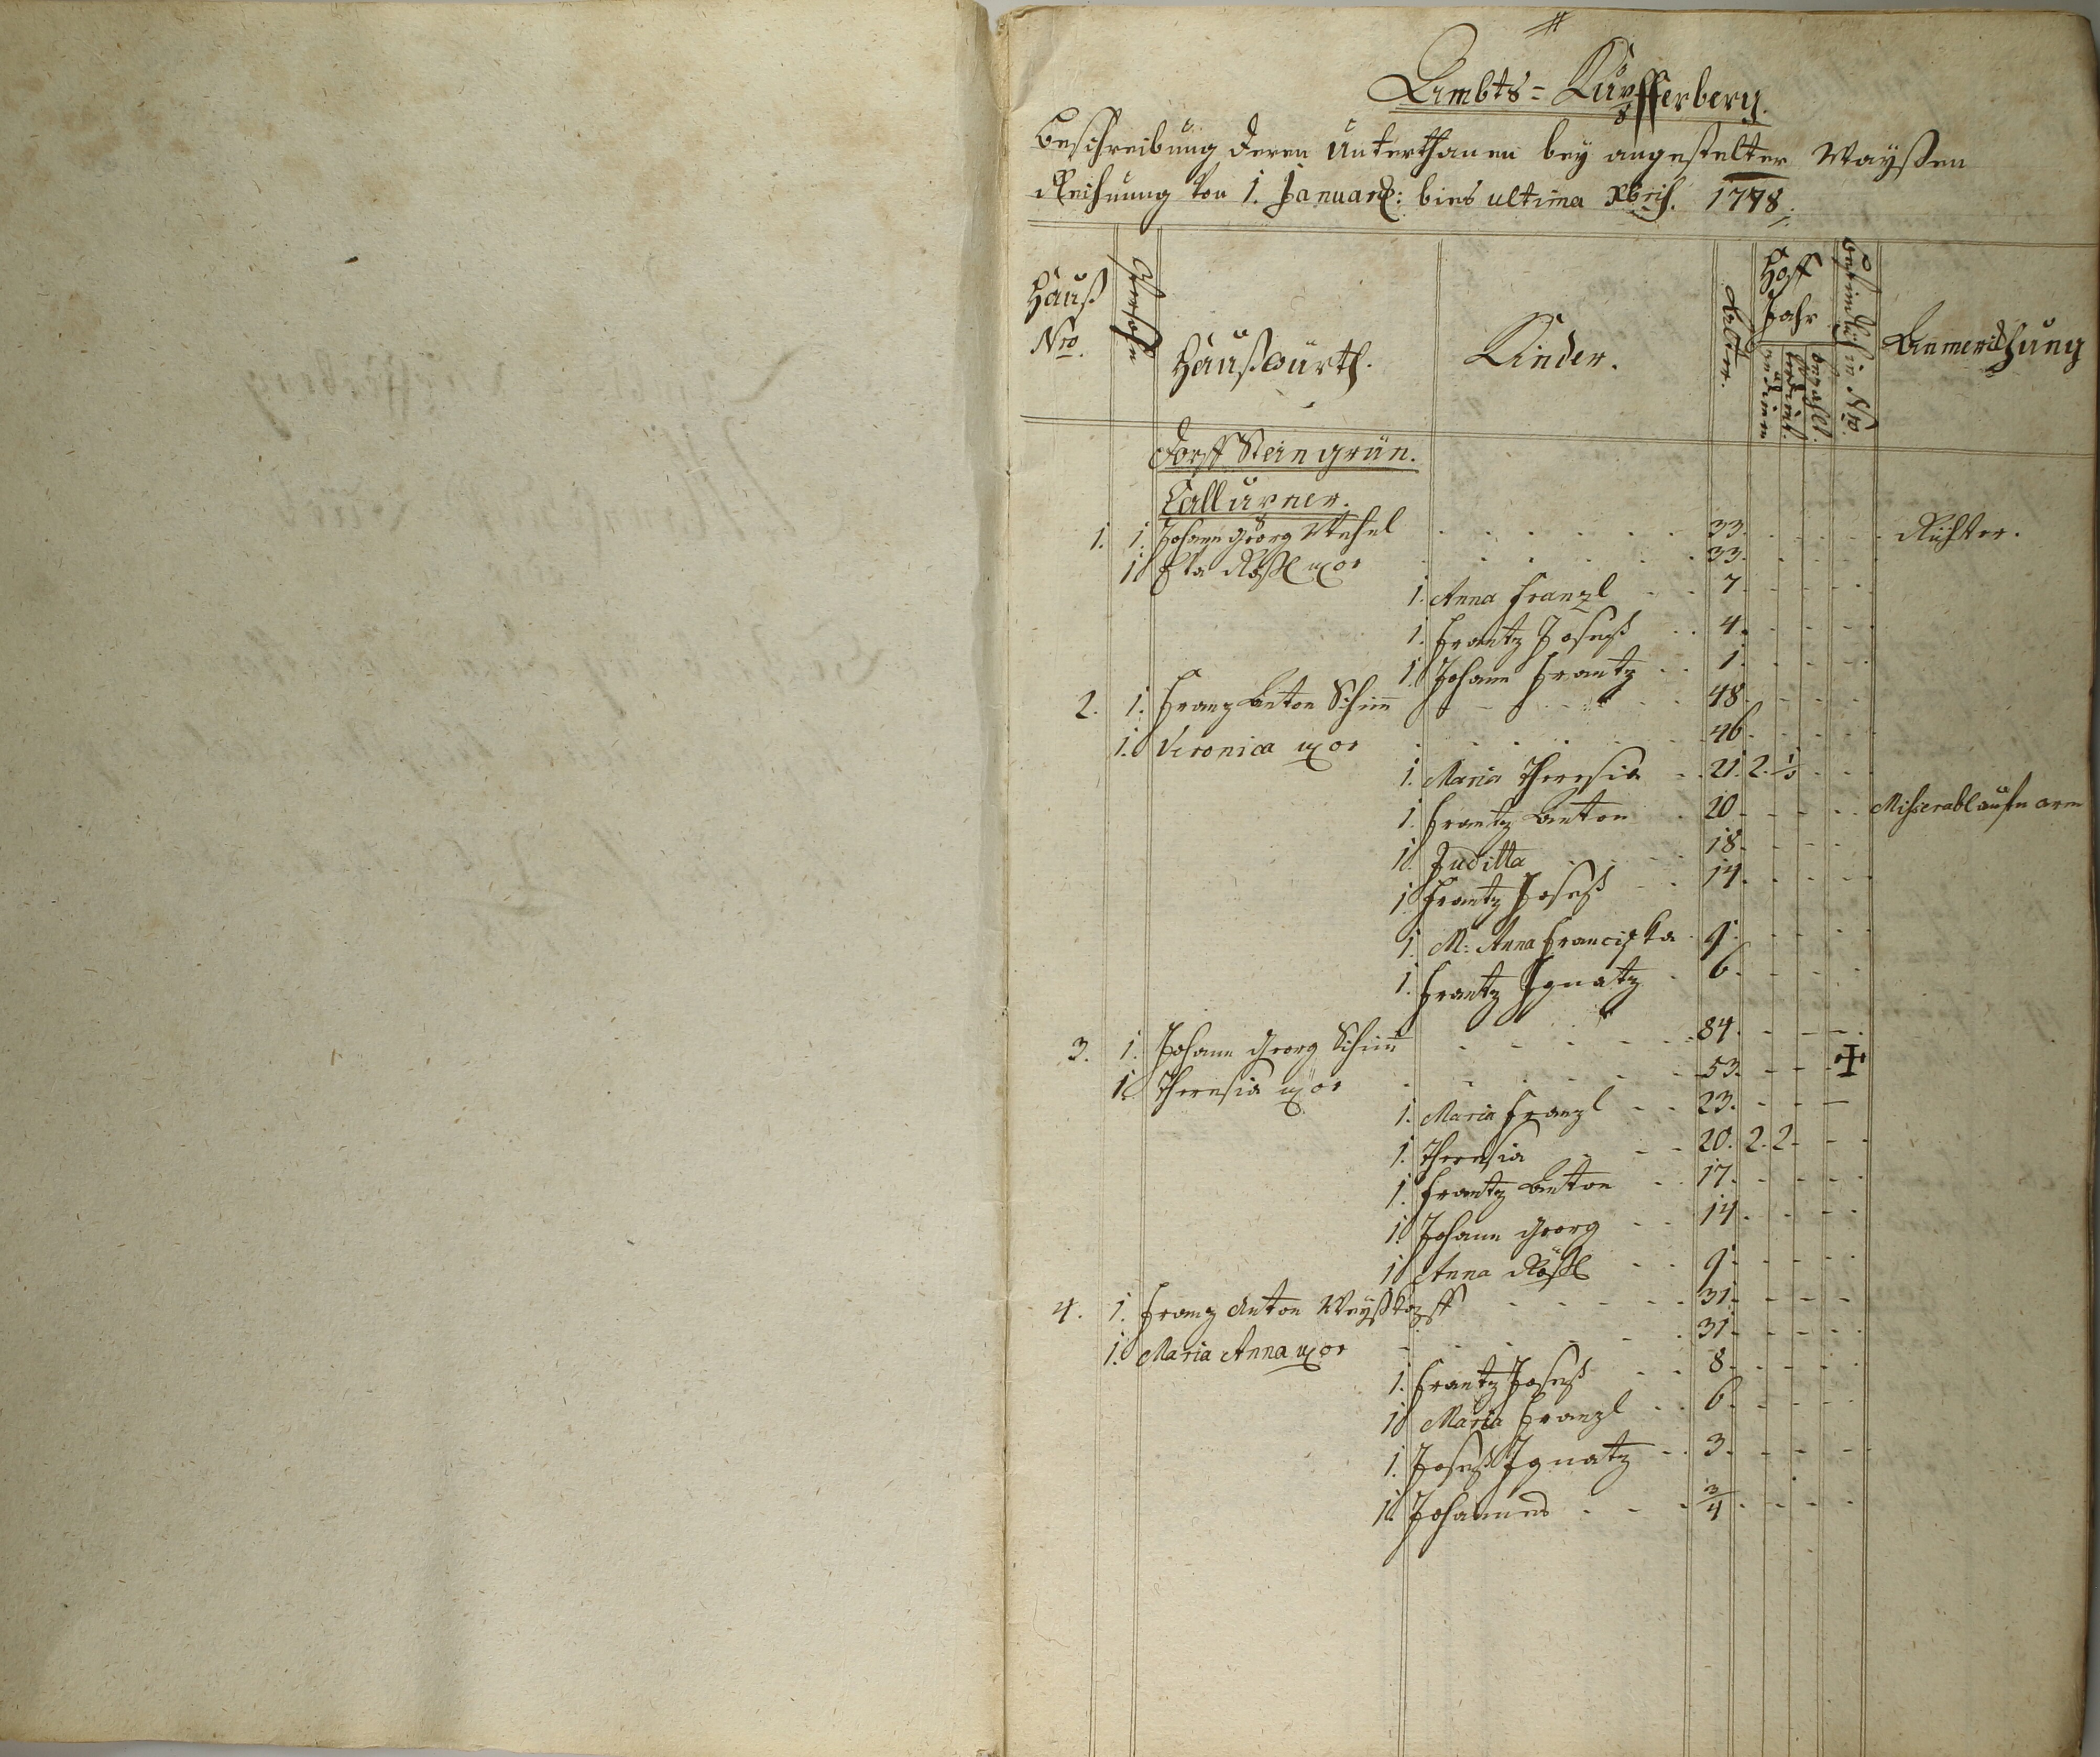 Ambts=Kupfferberg.
Beschreibung deren Unterthanen bey angestelter Wayßen
Rechnung von 1. Januar: bies ultima Xbris. 1778.
Hauß Nro. Persohn Haußwürth. Kinder. Alter. Hoff Jahr gedienn bezahlt. befindlich in Nro. Anmerckhung
Dorff Steingrün.
1. 1. Johann Georg 33. Richter.
1. Eva Rosl uxor 33.
1. Anna Franzl 7.
1. Frantz Joseph 4.
1. Johann Frantz 1.
2. 1. Franz Anton 48.
1. Veronica uxor 46.
1. Maria Theresia 21. 2.
1. Frantz Anton 20. Miserabl am arm
1. Juditta 18.
1. Frantz Joseph 14.
1. M: Anna Franciska 9.
1. Frantz Ignatz 6.
3. 1. Johann Georg 84.
1. Theresia uxor 53. ✝
1. Maria Franzl 23.
1. Theresia 20. 2. 2.
1. Frantz Anton 17.
1. Johann Georg 14.
1. Anna Rosl 9.
4. 1. Franz Anton Weyßkopff 31.
1. Maria Anna uxor 31.
1. Frantz Joseph 8.
1. Maria Franzl 6.
1. Joseph Ignatz 3.
1. Johannes 3/4